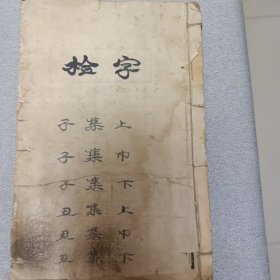 检字
子集上
子集中
子集下
丑集上
丑集中
丑集下